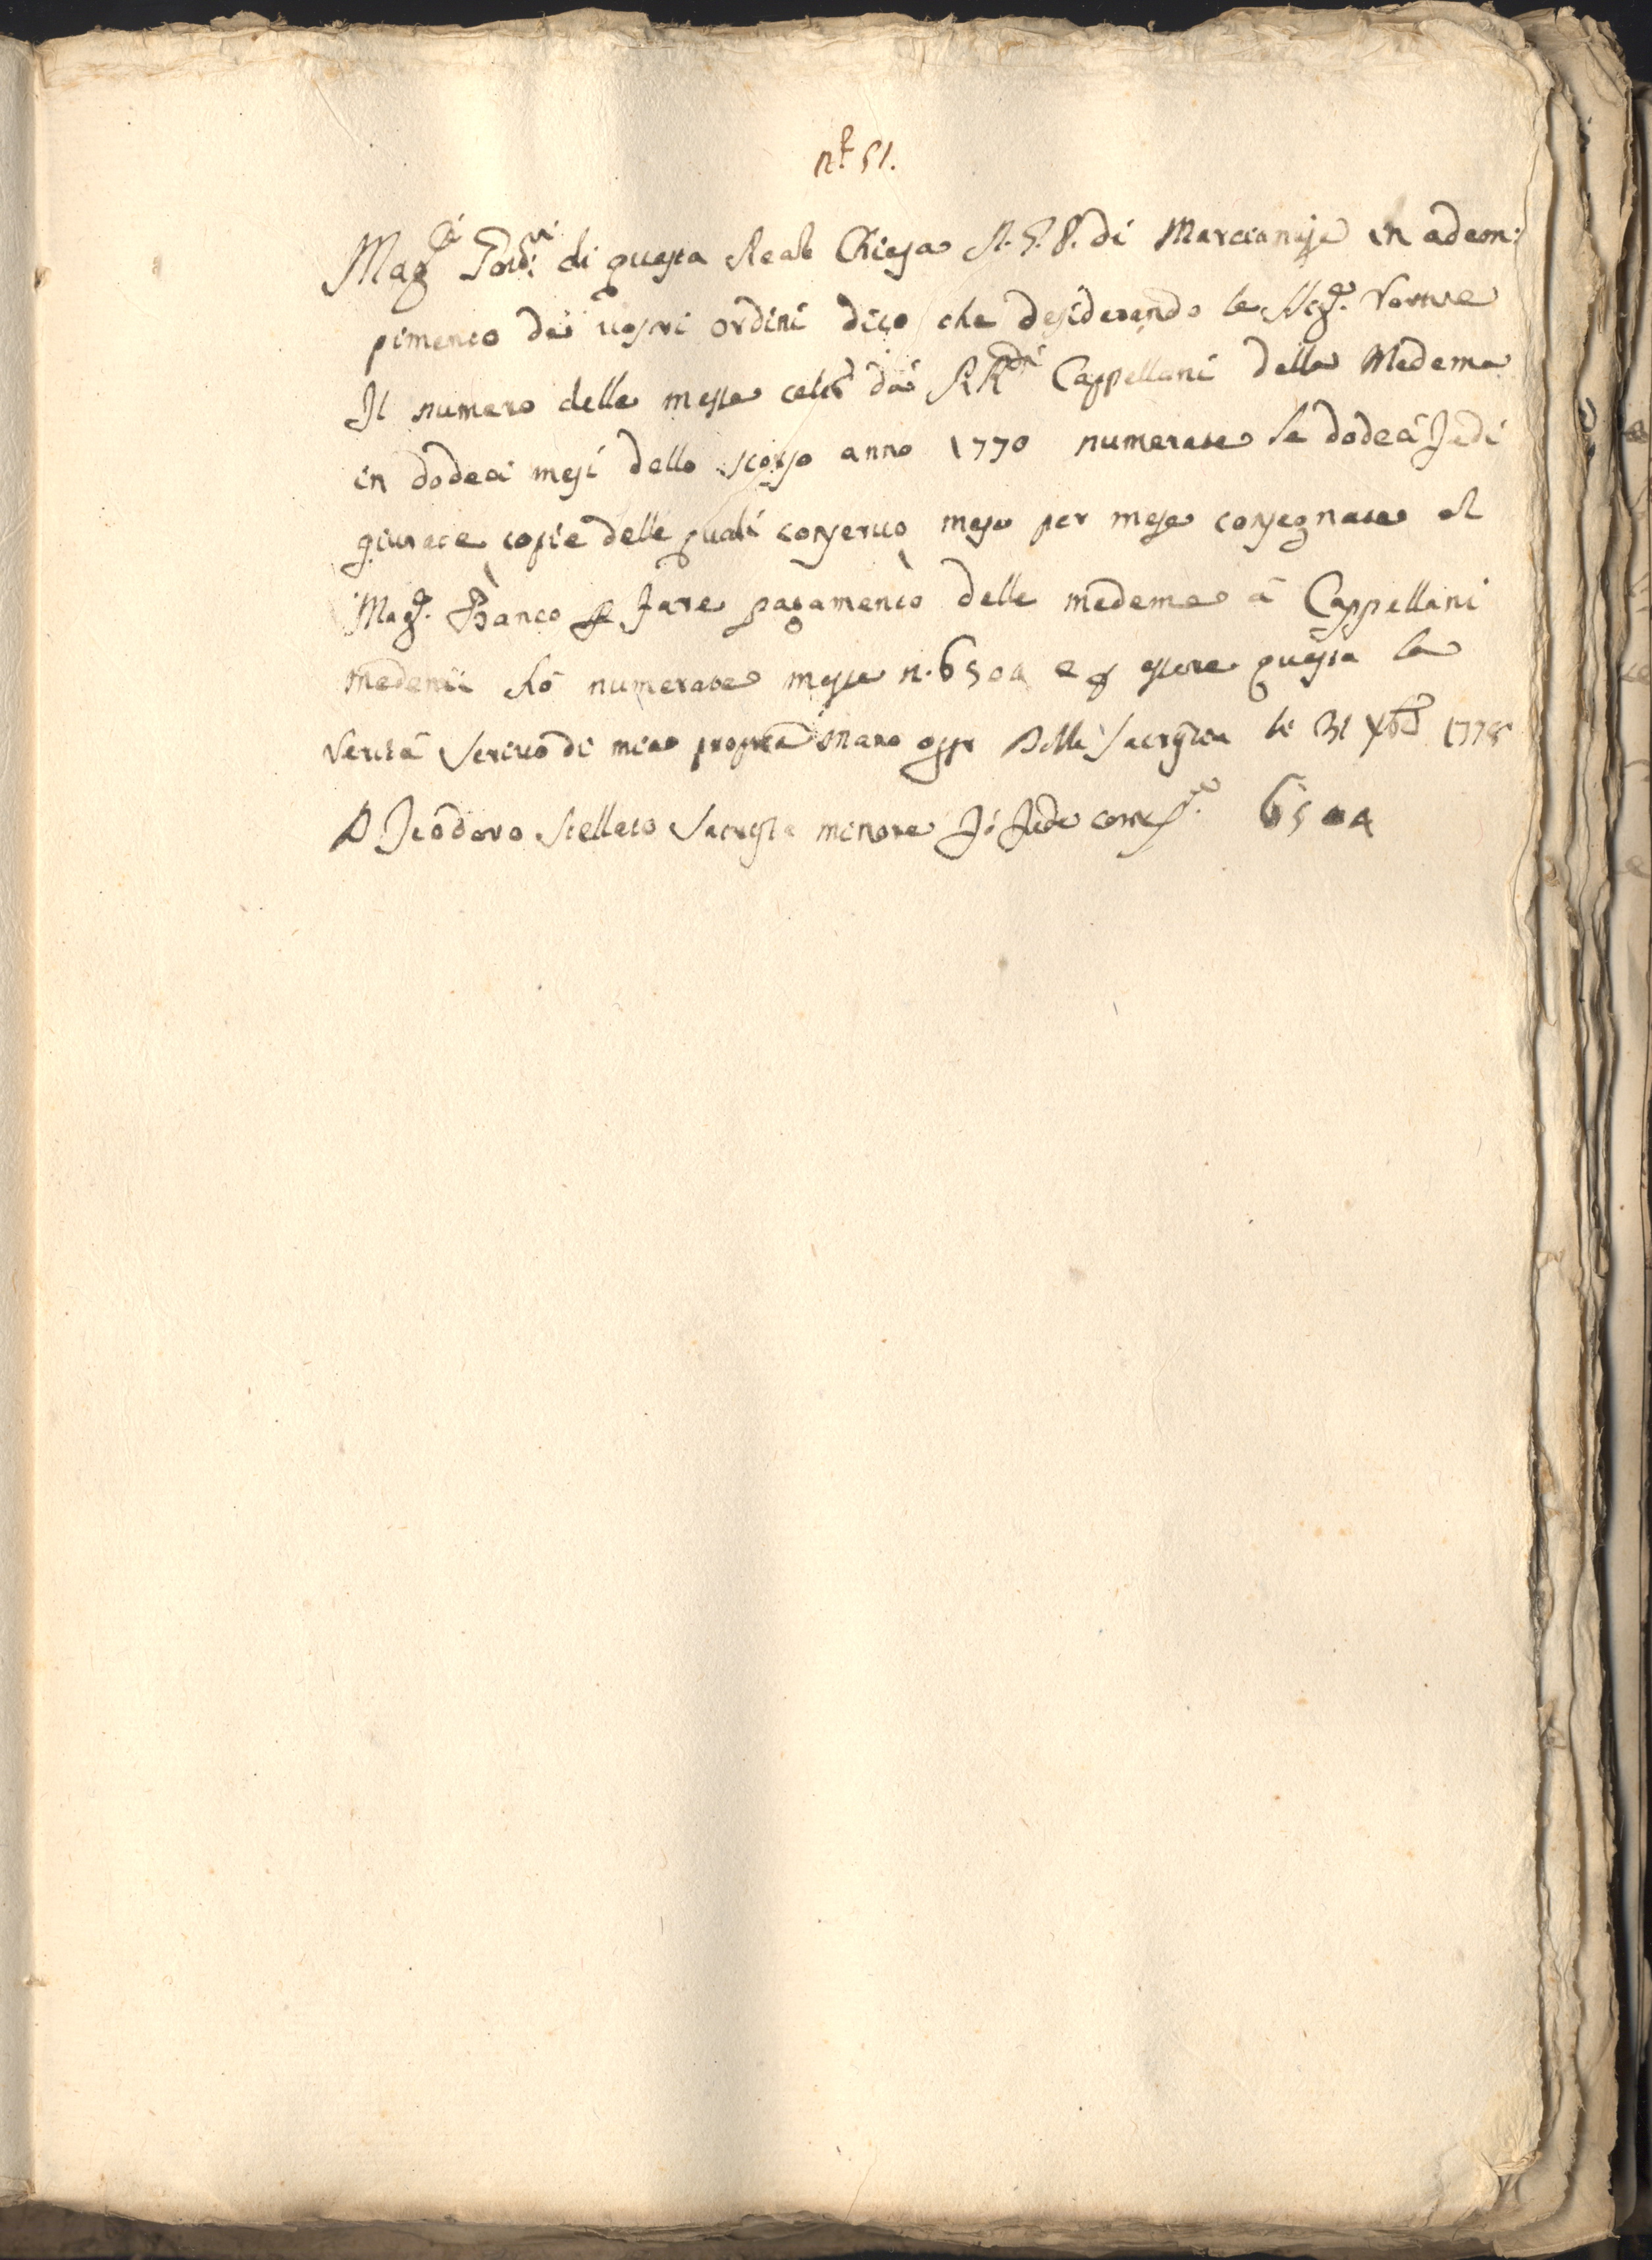 n.º 51.
Mag.ci Gov.ri di questa Reale Chiesa A. G. P. di Marcianise in adem:
pimento dei vostri ordini dico che desiderando le Mag.e Vostre
Il numero delle messe celeb.e dai RR.di Cappellani della Medema
in dodeci mesi dello scorso anno 1770 numerate le dodeci fedi
giurate, copie delle quali conservo mese per mese consegnate al
Mag.o Banco per fare pagamento delle medeme a Cappellani
medemi hò numerate messe n. 6504 e per essere questa la
verità scrivo di mia propria mano oggi Dalla Sacrestia li 31 Xbre 1778
D. Teodoro Stellato Sacrista minore fò fede come s.a 6504